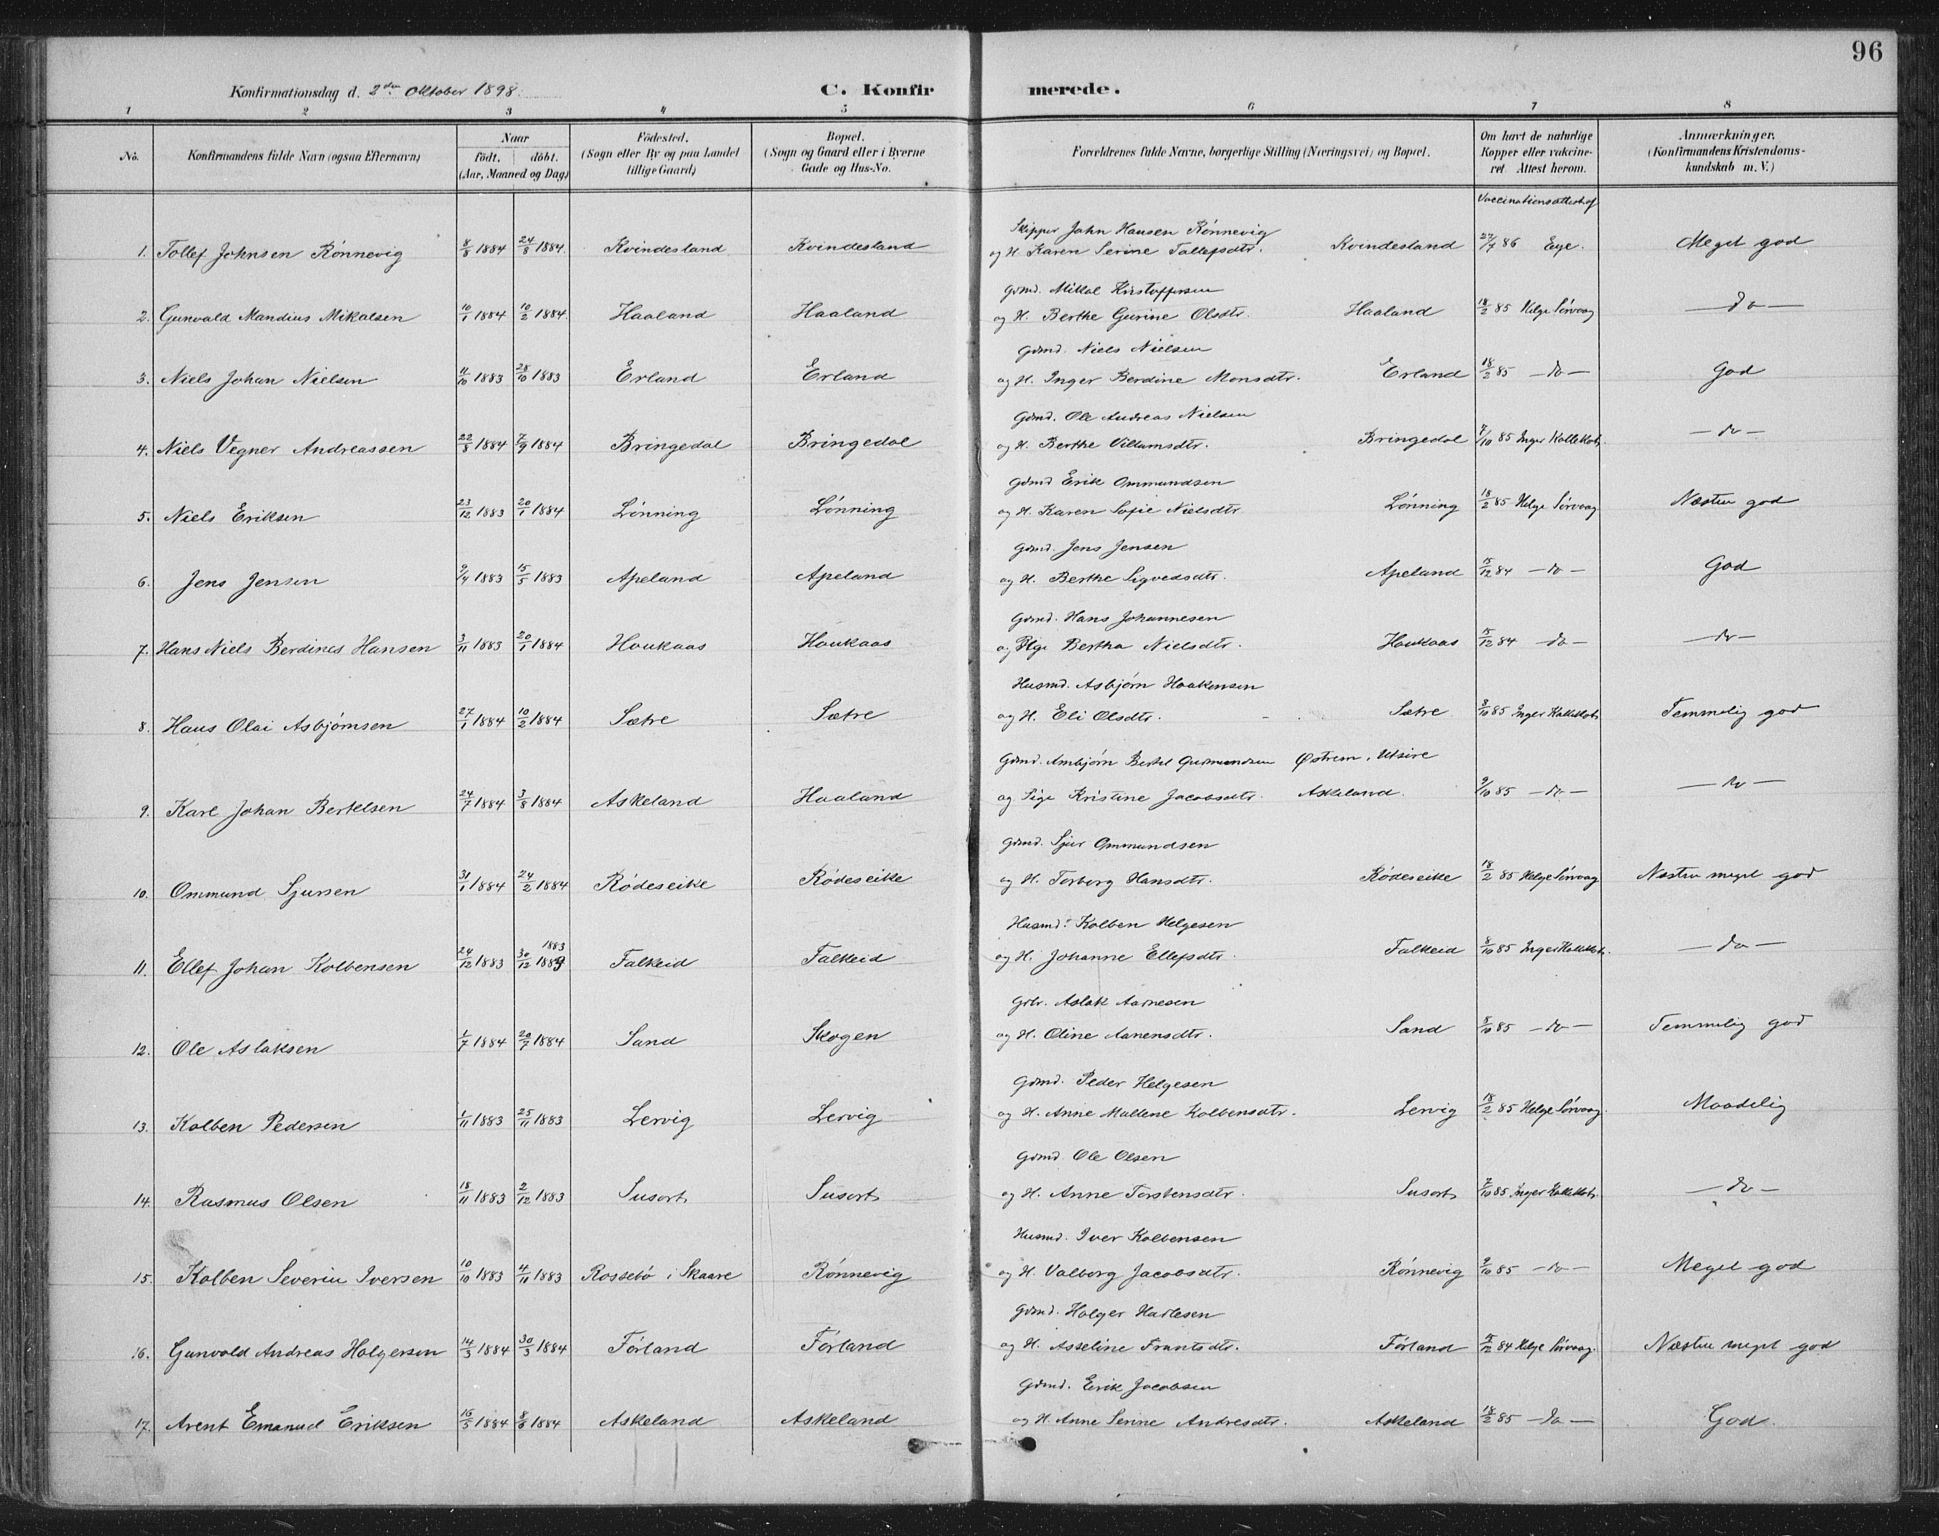 96
Konfirmationsdag d. 2den Oktober 1898. C. Konfirmerede.
1 2 3 4 5 6 7 8
No. Konfirmandens fulde Navn (ogsaa Efternavn) Naar født. døbt. (Aar, Maaned og Dag) Fødested. (Sogn eller By og paa Landet tillige Gaard) Bopæl. (Sogn og Gaard eller i Byerne Gade og Hus-No. Forældrenes fulde Navne, borgerlige Stilling (Næringsvei) og Bopæl. Om havt de naturlige Kopper eller vakcineret Attest herom. Anmærkninger. (Konfirmandens Kristendomskundskab m. V.)
Vaccinationsattest af
Skipper John Hansen Rønnevig
1. Tollef Johnsen Rønnevig 8/8 1884 24/8 1884. Kvindesland Kvindesland og H. Karen Serine Tollefsdtr. Kvindesland 27/7 86 Eye. Meget god
Gdmd. Mikal Kristoffersen
2. Gunvald Mandius Mikalsen 10/1 1884 10/2 1884. Haaland Haaland og H. Berthe Gurine Olsdtr. Haaland 18/2 85 Helge Sørvaag — do —
Gdmd. Niels Nielsen
3. Niels Johan Nielsen 11/10 1883 28/10 1883 Erland Erland og H. Inger Berdine Monsdtr. Erland 18/2 85 — do — God
Gdmd. Ole Andreas Nielsen
4. Niels Vegner Andreassen 22/8 1884 7/9 1884 Bringedal Bringedal og H. Berthe Villumsdtr. Bringedal 7/10 85 Inger — do —
Gdmd. Erik Ommundsen
5. Niels Eriksen 23/12 1883 20/1 1884 Lønning Lønning og H. Karen Sofie Nielsdtr Lønning 18/2 85 Helge Sørvaag Næsten god
Gdmd. Jens Jensen
6. Jens Jensen 9/4 1883 15/5 1883 Apeland Apeland og H. Berthe Sigvedsdtr. Apeland 15/12 84 — do — God
Gdmd. Hans Johannesen
7. Hans Niels Berdines Hansen 3/11 1883 20/1 1884 Houkaas Houkaas og Pige Bertha Nielsdtr. Houkaas 15/12 84 — do — — do —
Husmd. Asbjørn Haakensen
8. Hans Olai Asbjørnsen 27/1 1884 10/2 1884 Sætre Sætre og H. Eli Olsdtr. Sætre 8/10 85 Inger Temmelig god
Gdmd. Ambjørn Bertel Gudmundsen Østrem, Utsire
9. Karl Johan Bertelsen 24/7 1884 3/8 1884 Askeland Haaland og Pige Kristine Jacobsdtr. Askeland. 9/10 85 — do — — do —
Gdmd. Sjur Ommundsen
10. Ommund Sjursen 31/1 1884 24/2 1884 Rødeseike Rødeseike og H. Torborg Hansdtr. Rødeseike 18/2 85 Helge Sørvaag Næsten meget god
Husmd. Kolben Helgesen
11. Ellef Johan Kolbensen 24/12 1883 30/12 1883 Falkeid Falkeid og H. Johanne Ellefsdtr. Falkeid 8/10 85 Inger — do —
Grbr. Aslak Aanesen
12. Ole Aslaksen 1/7 1884 20/7 1884 Sand Skogen og H. Oline Aanensdtr. Sand 8/10 85 — do — Temmelig god
Gdmd. Peder Helgesen
13. Kolben Pedersen 1/11 1883 25/11 1883 Lervig Lervig og H. Anne Mallene Kolbensdtr. Lervig 18/2 85 Helge Sørvaag. Maadelig
Gdmd. Ole Olsen
14. Rasmus Olsen 18/11 1883 2/12 1883 Susort Susort og H. Anne Torstensdtr. Susort 7/10 85 Inger — do —
Husmd. Iver Kolbensen
15. Kolben Severin Iversen 10/10 1883 4/11 1883 Rossebø i Skaare Rønnevig og H. Valborg Jacobsdtr. Rønnevig 9/10 85 — do — Meget god
Gdmd. Holger Hartesen
16. Gunvald Andreas Holgersen 14/3 1884 30/3 1884 Førland Førland og H. Asseline Frantsdtr. Førland 15/12 84 Helge Sørvaag. Næsten meget god
Gdmd. Erik Jacobsen
17. Arent Emanuel Eriksen 16/5 1884 8/6 1884 Askeland Askeland og H. Anne Serine Andresdtr. Askeland 18/2 85 — do — God.